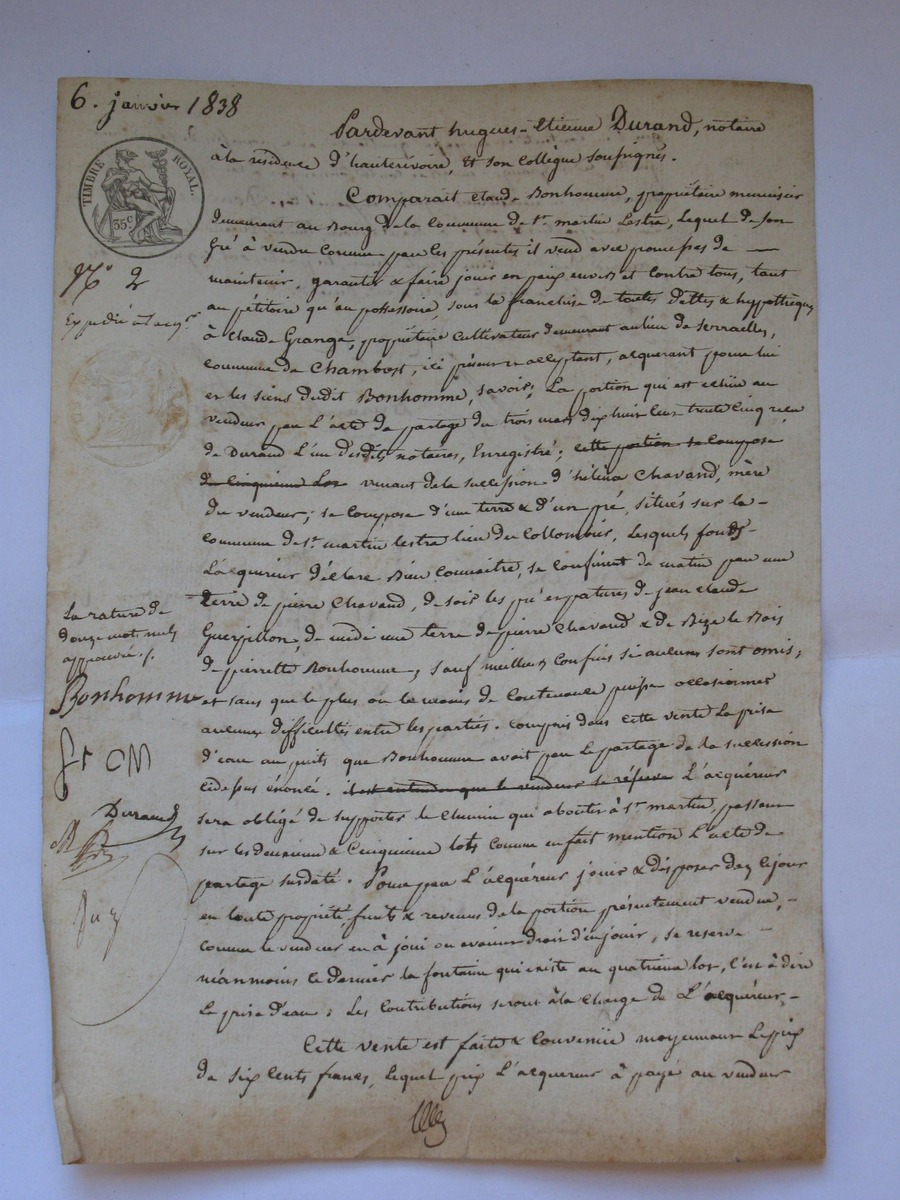 6. janvier 1838
Pardevant hugues-Etienne Durand, notaire
à la résidence d'hauterivoire, et son collègue soussignés.
TIMBRE ROYAL.
35c
Comparait Claude Bonhomme, propriétaire menuisier
demeurant au Bourg de la Commune de St martin Lestra, Lequel de son
gré à vendu comme par les présentes il vend avec promesses de —
No 2
maintenir, garantir & faire jouir en paix envers et contre tous, tant
au pétitoire qu'au possessoire, sous la franchise de toutes dettes & hypothèques
Expédié à l'acqr
à Claude Grange, propriétaire cultivateur demeurant au lieu de Serrailles,
commune de Chambost, ici présent & acceptant, acquerant pour lui
et les siens dudit Bonhomme, Savoir; La portion qui est echüe au
vendeur par L'acte de partage du trois mars dix huit cent trente cinq reçu
de Durand L'un desdits notaires, Enregistré; cette portion se compose
du cinquième Lot venant de la succession d'hélène Chavand, mère
du vendeur; se compose d'une terre & d'un pré, situés sur la -
commune de St martin lestra lieu du Collombier, Lesquels fonds -
L'acquéreur déclare Bien Connaitre, se confinent de matin par une
terre de pierre Chavand, de soir les pré et patures de jean Claude
La rature de
douze mots nuls
approuvée ./.
Guerpillon, de midi une terre de pierre Chavand & de Bize le Bois
de pierrette Bonhomme, sauf meilleurs confins si aucuns sont omis;
Bonhomme
et sans que le plus ou le moins de contenance puisse occasionner
aucunes difficultés entre les parties. compris dans cette vente La prise
d'eau au puits que Bonhomme avait par le partage de la succession
cidessus énoncé. il est entendu que le vendeur se réserve L'acquéreur
Durand
sera obligé de supporter le chemin qui aboutit à St martin, passant
sur les deuxième & cinquième lots comme en fait mention L'acte de
partage susdaté. Pour par L'acquéreur jouir & disposer dez ce jour
en toute propriété fruits & revenus de la portion présentement vendue, -
comme le vendeur en à joui ou avait droit d'en jouir, se reserve -
néanmoins ce dernier la fontaine qui existe au quatrième lot, c'est à dire
La prise d'eau; Les contributions seront à la charge de L'acquéreur, -
Cette vente est faite & convenüe moyennant Le prix
de six cents francs, Lequel prix L'acquereur à payé au vendeur